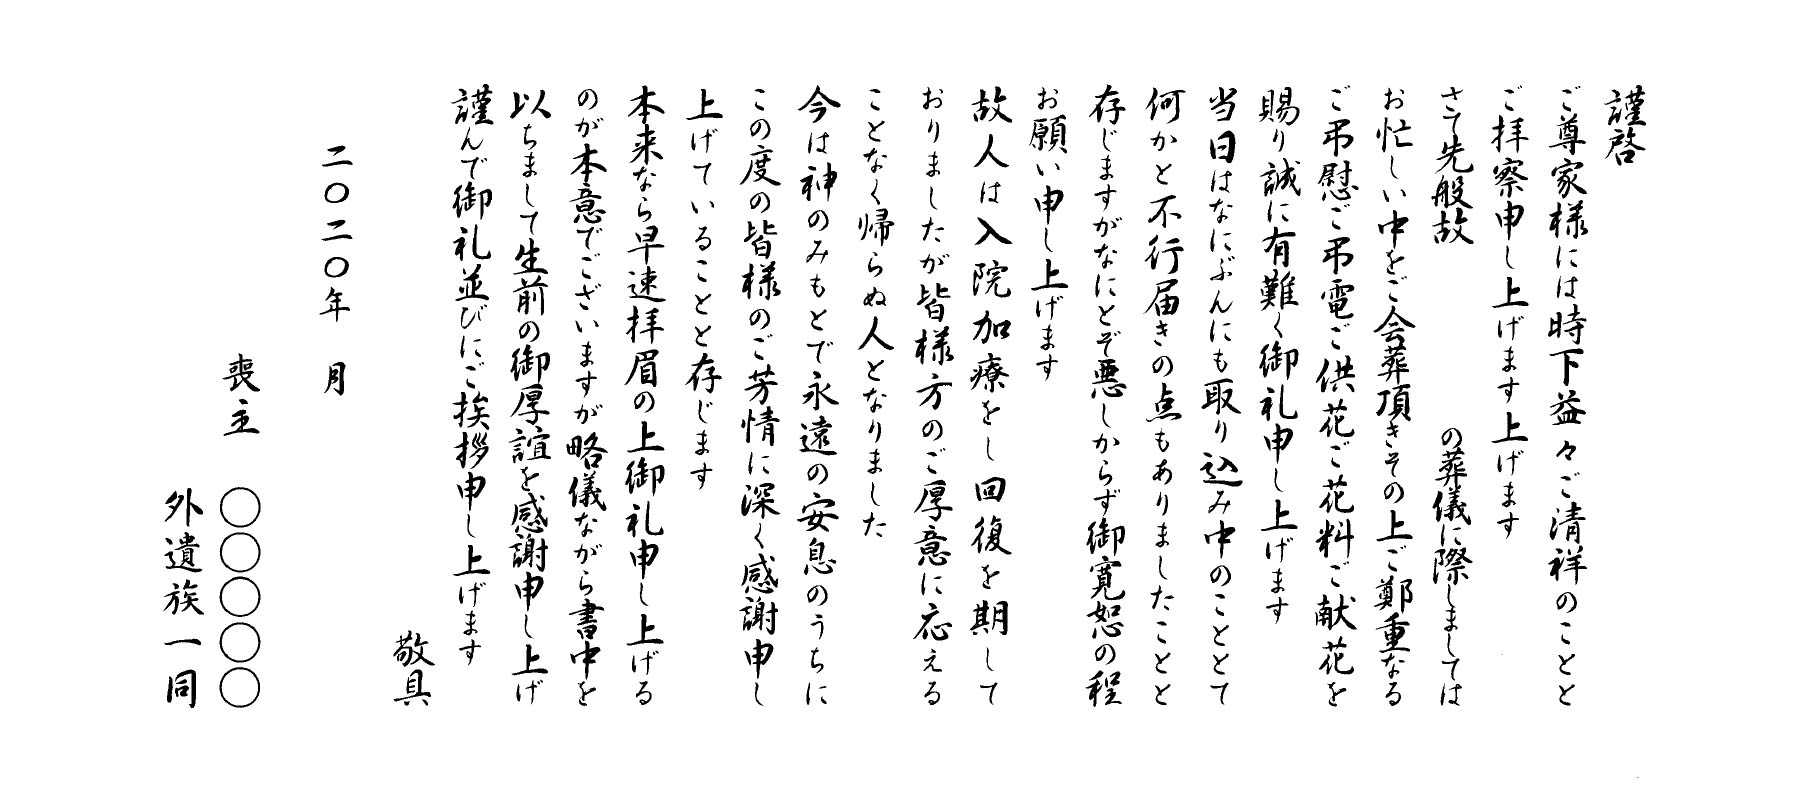 謹啓
ご尊家様には時下益々ご清祥のことと
ご拝察申し上げます上げます
さて先般故　　　　の葬儀に際しましては
お忙しい中をご会葬頂きその上ご鄭重なる
ご弔慰ご弔電ご供花ご花料ご献花を
賜り誠に有難く御礼申し上げます
当日はなにぶんにも取り込み中のこととて
何かと不行届きの点もありましたことと
存じますがなにとぞ悪しからず御寛恕の程
お願い申し上げます
故人は入院加療をし回復を期して
おりましたが皆様方のご厚意に応える
ことなく帰らぬ人となりました
今は神のみもとで永遠の安息のうちに
この度の皆様のご芳情に深く感謝申し
上げていることと存じます
本来なら早速拝眉の上御礼申し上げる
のが本意でございますが略儀ながら書中を
以ちまして生前の御厚誼を感謝申し上げ
謹んで御礼並びにご挨拶申し上げます
敬具
二〇二〇年　月
喪主　〇〇〇〇〇
外遺族一同